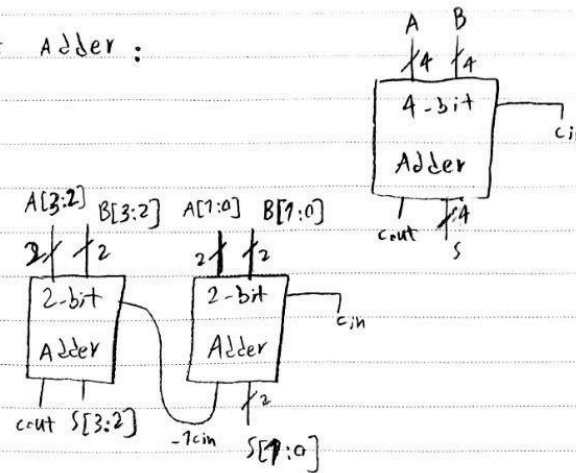 Adder :
A B
4 4
4-bit
Adder
cin
cout 4
S
A[3:2] B[3:2] A[1:0] B[1:0]
2 2 2 2
2-bit 2-bit
Adder Adder
cin
cout S[3:2] -1cin 2
S[1:0]